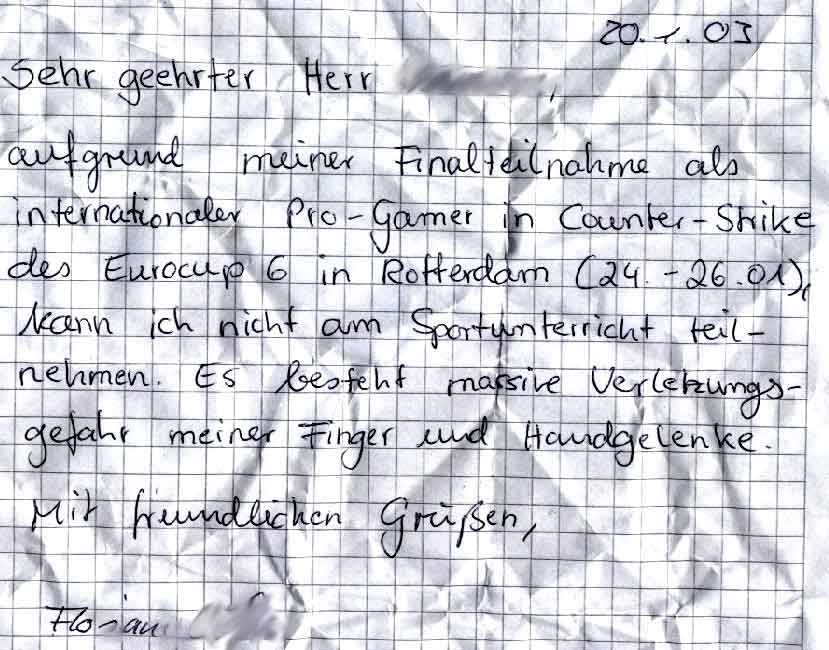 20.1.03
Sehr geehrter Herr ,
aufgrund meiner Finalteilnahme als
internationaler Pro-Gamer in Counter-Strike
des Eurocup 6 in Rotterdam (24.-26.01),
kann ich nicht am Sportunterricht teil-
nehmen. Es besteht massive Verletzungs-
gefahr meiner Finger und Handgelenke.
Mit freundlichen Grüßen,
Florian